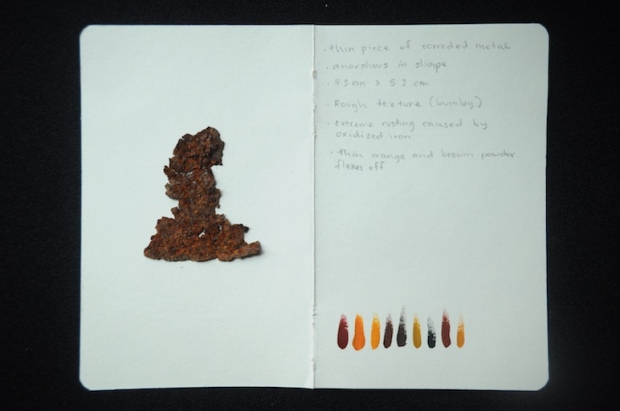 · thin piece of corroded metal
· amorphous in shape
· 9.5 cm x 5.2 cm
· Rough texture (bumby)
· extreme rusting caused by
oxidized iron
· thin orange and brown powder
flakes off